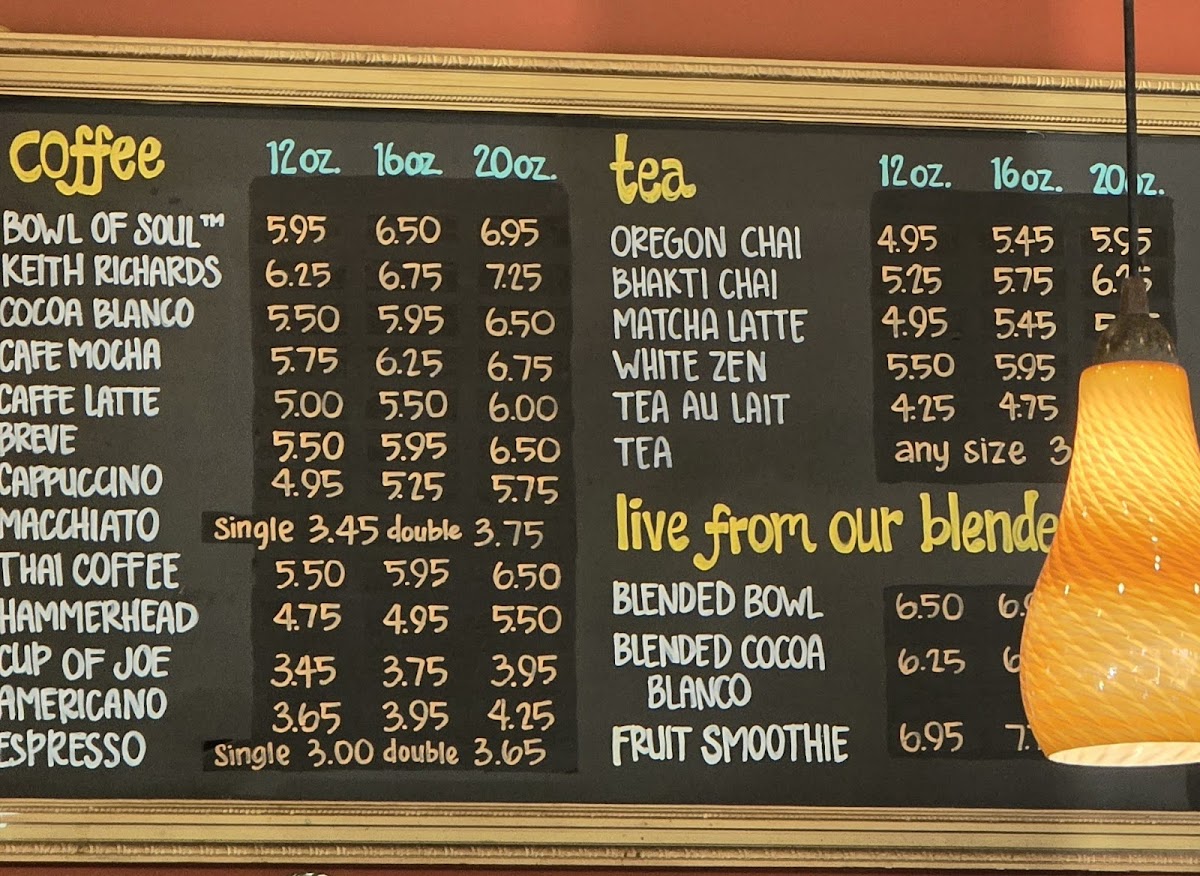 coffee 12 oz. 16 oz. 20 oz.
BOWL OF SOUL™ 5.95 6.50 6.95
KEITH RICHARDS 6.25 6.75 7.25
COCOA BLANCO 5.50 5.95 6.50
CAFE MOCHA 5.75 6.25 6.75
CAFFE LATTE 5.00 5.50 6.00
BREVE 5.50 5.95 6.50
CAPPUCCINO 4.95 5.25 5.75
MACCHIATO single 3.45 double 3.75
THAI COFFEE 5.50 5.95 6.50
HAMMERHEAD 4.75 4.95 5.50
CUP OF JOE 3.45 3.75 3.95
AMERICANO 3.65 3.95 4.25
ESPRESSO single 3.00 double 3.65
tea 12 oz. 16 oz. 20 oz.
OREGON CHAI 4.95 5.45 5.95
BHAKTI CHAI 5.25 5.75
MATCHA LATTE 4.95 5.45
WHITE ZEN 5.50 5.95
TEA AU LAIT 4.25 4.75
TEA any size
live from our
BLENDED BOWL 6.50
BLENDED COCOA 6.25
BLANCO
FRUIT SMOOTHIE 6.95